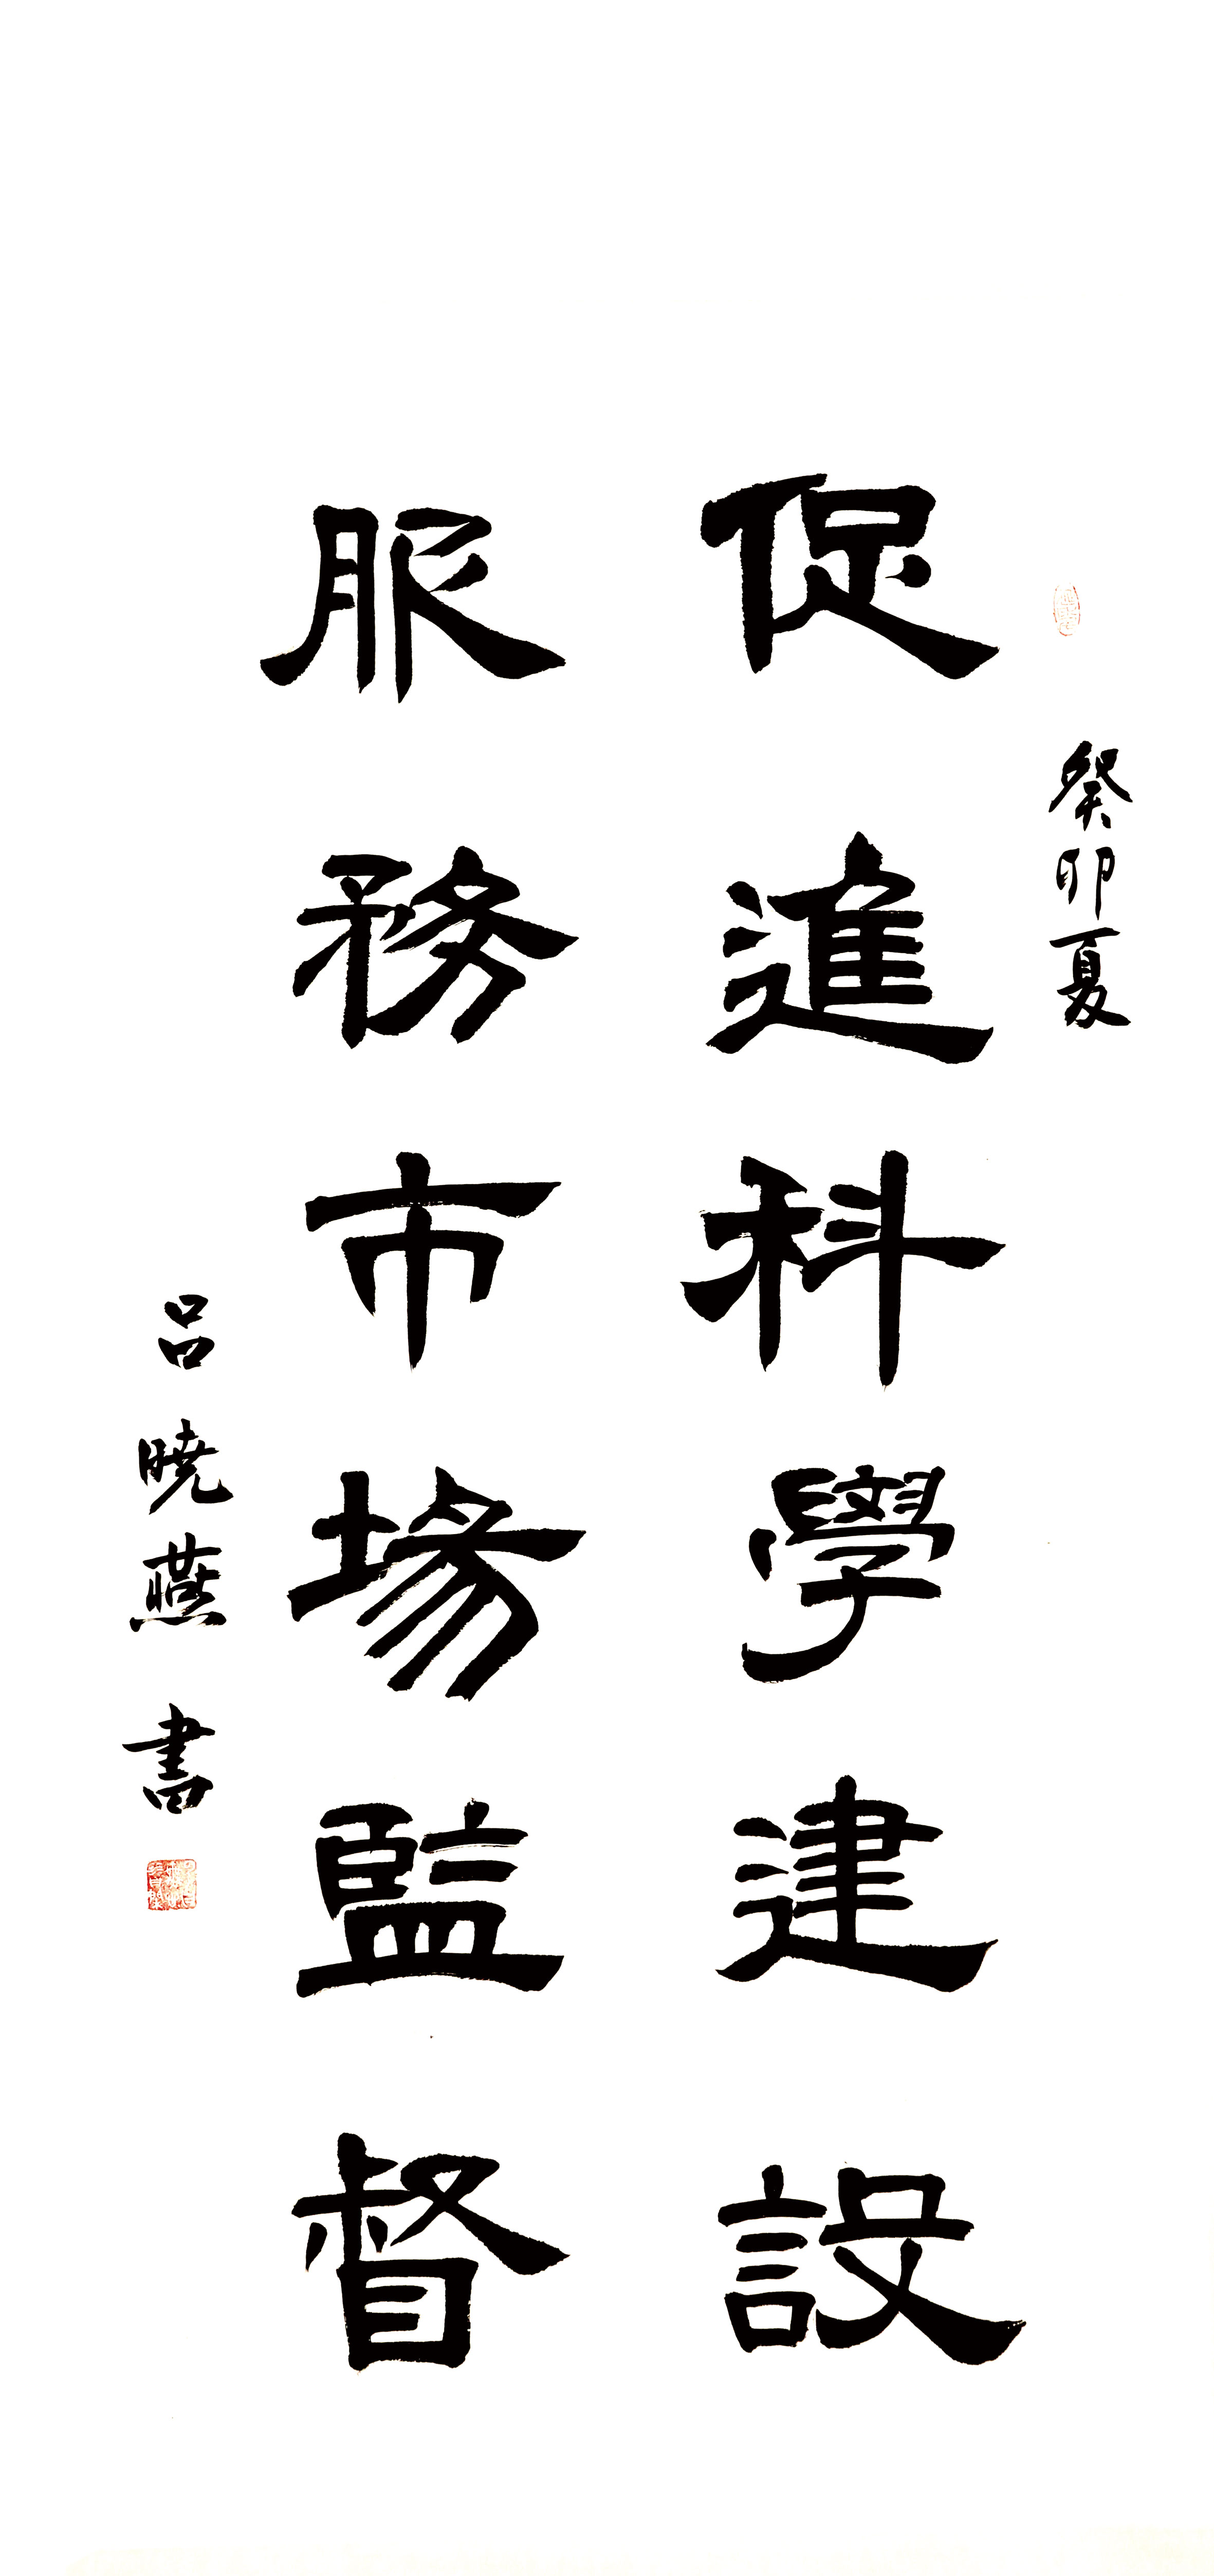 癸卯夏
促進科學建設
服務市場監督
呂曉燕書